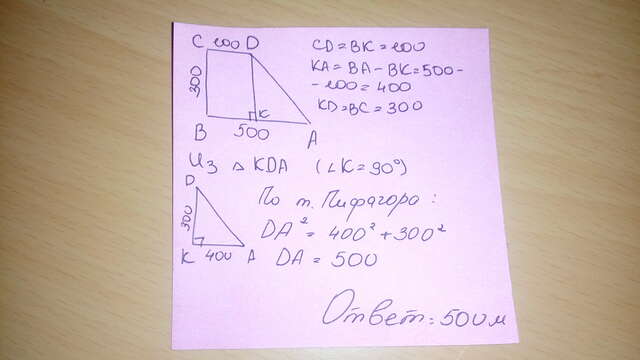 C 100 D
300
K
B 500 A
CD = BK = 100
KA = BA - BK = 500 -
- 100 = 400
KD = BC = 300
Из △ KDA (∠K = 90°)
D
300
K 400 A
По т. Пифагора:
DA² = 400² + 300²
DA = 500
Ответ: 500 м